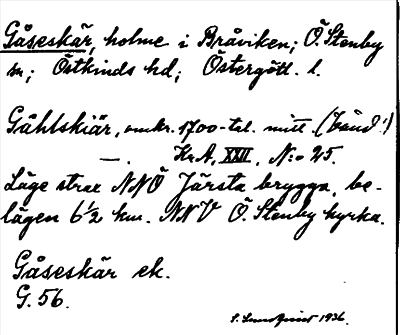 Gåseskär, holme i Bråviken; Ö. Stenby
sn; Östkinds hd; Östergötl. l.
Gåhlskiär, omkr. 1700-tal. mitt (
—. Kr.A, XXII, N:o 25.
Läge strax NNÖ Järsta brygga, be-
lägen 6 1/2 km. NNV Ö. Stenby kyrka.
Gåseskär ek.
G. 56.
S. Lundquist 1936.